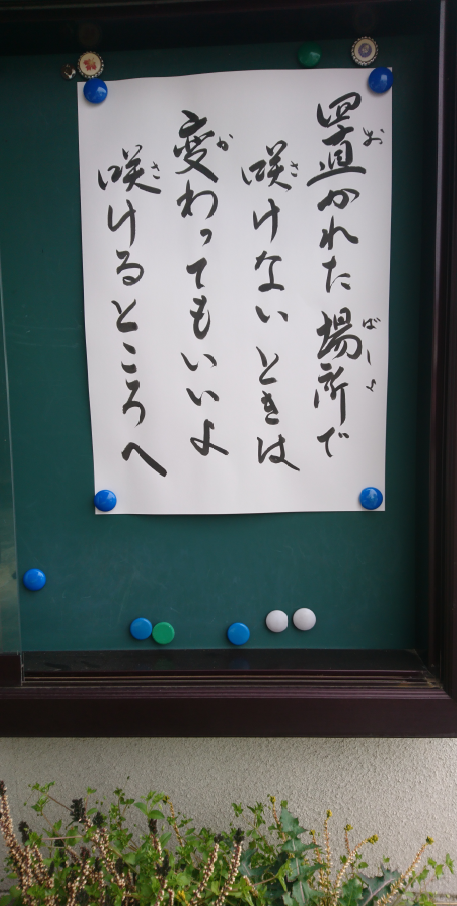 置かれた場所で
咲けないときは
変わってもいいよ
咲けるところへ